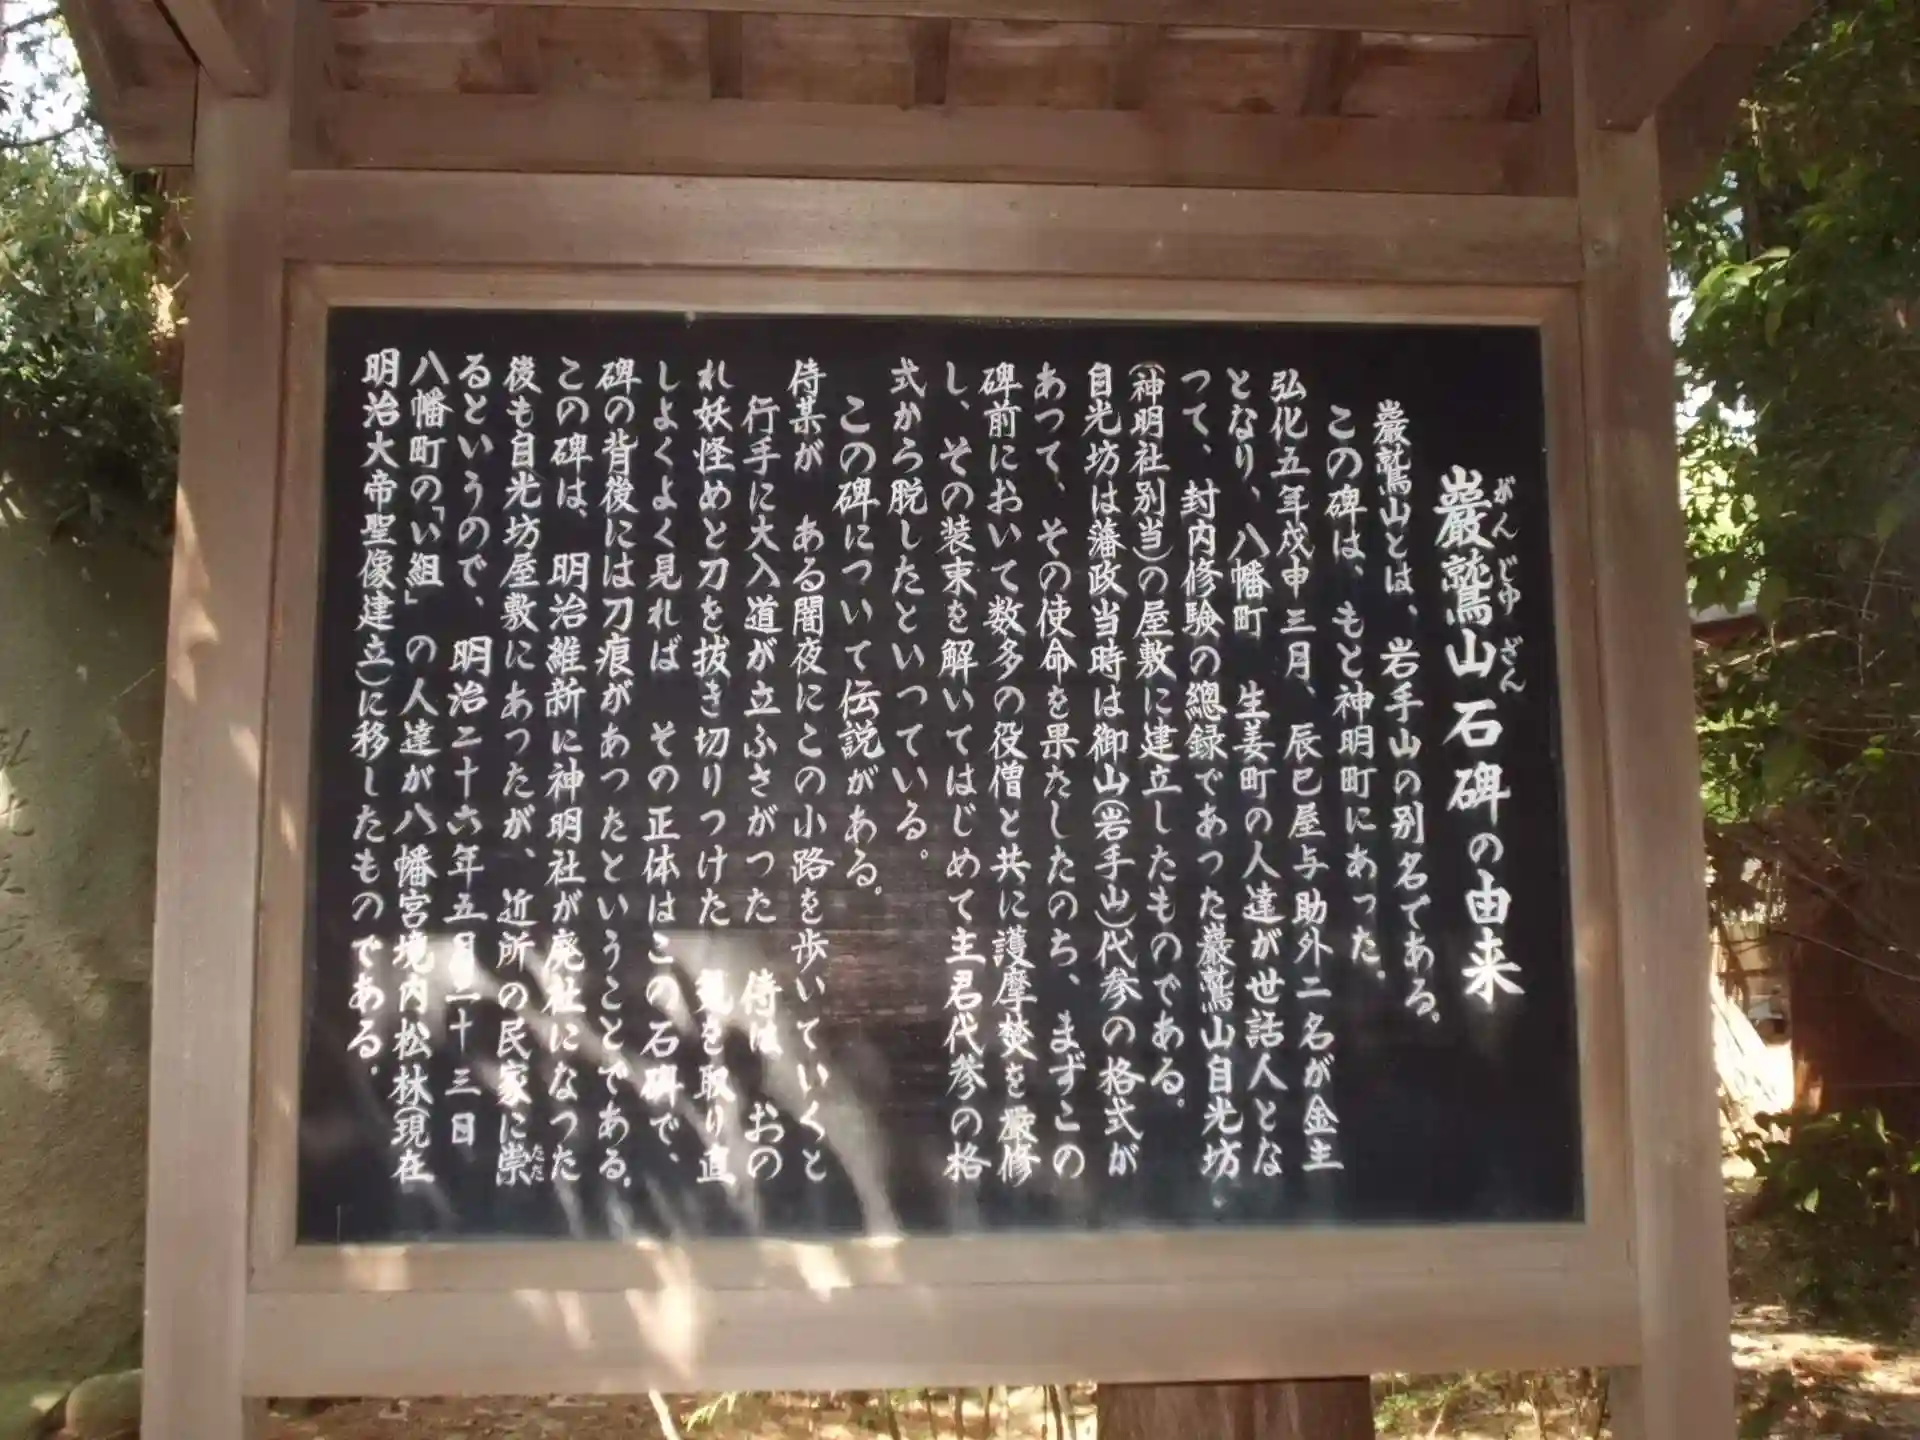 巖鷲山石碑の由来
がんじゆざん
巖鷲山とは、岩手山の別名である。
この碑は、もと神明町にあった。
弘化五年戊申三月、辰巳屋与助外二名が金主
となり、八幡町 生姜町の人達が世話人とな
つて、封内修験の總録であつた巖鷲山自光坊
(神明社別当)の屋敷に建立したものである。
自光坊は藩政当時は御山(岩手山)代参の格式が
あつて、その使命を果たしたのち、まずこの
碑前において数多の役僧と共に護摩焚を厳修
し、その装束を解いてはじめて主君代参の格
式から脱したといつている。
この碑について伝説がある。
侍某が ある闇夜にこの小路を歩いていくと
行手に大入道が立ふさがつた 侍は おの
れ妖怪めと刀を抜き切りつけた 気を取り直
しよくよく見れば その正体はこの石碑で、
碑の背後には刀痕があつたということである。
この碑は、明治維新に神明社が廃社になつた
後も自光坊屋敷にあつたが、近所の民家に崇
たた
るというので、明治二十六年五月二十三日
八幡町の「い組」の人達が八幡宮境内松林(現在
明治大帝聖像建立)に移したものである。